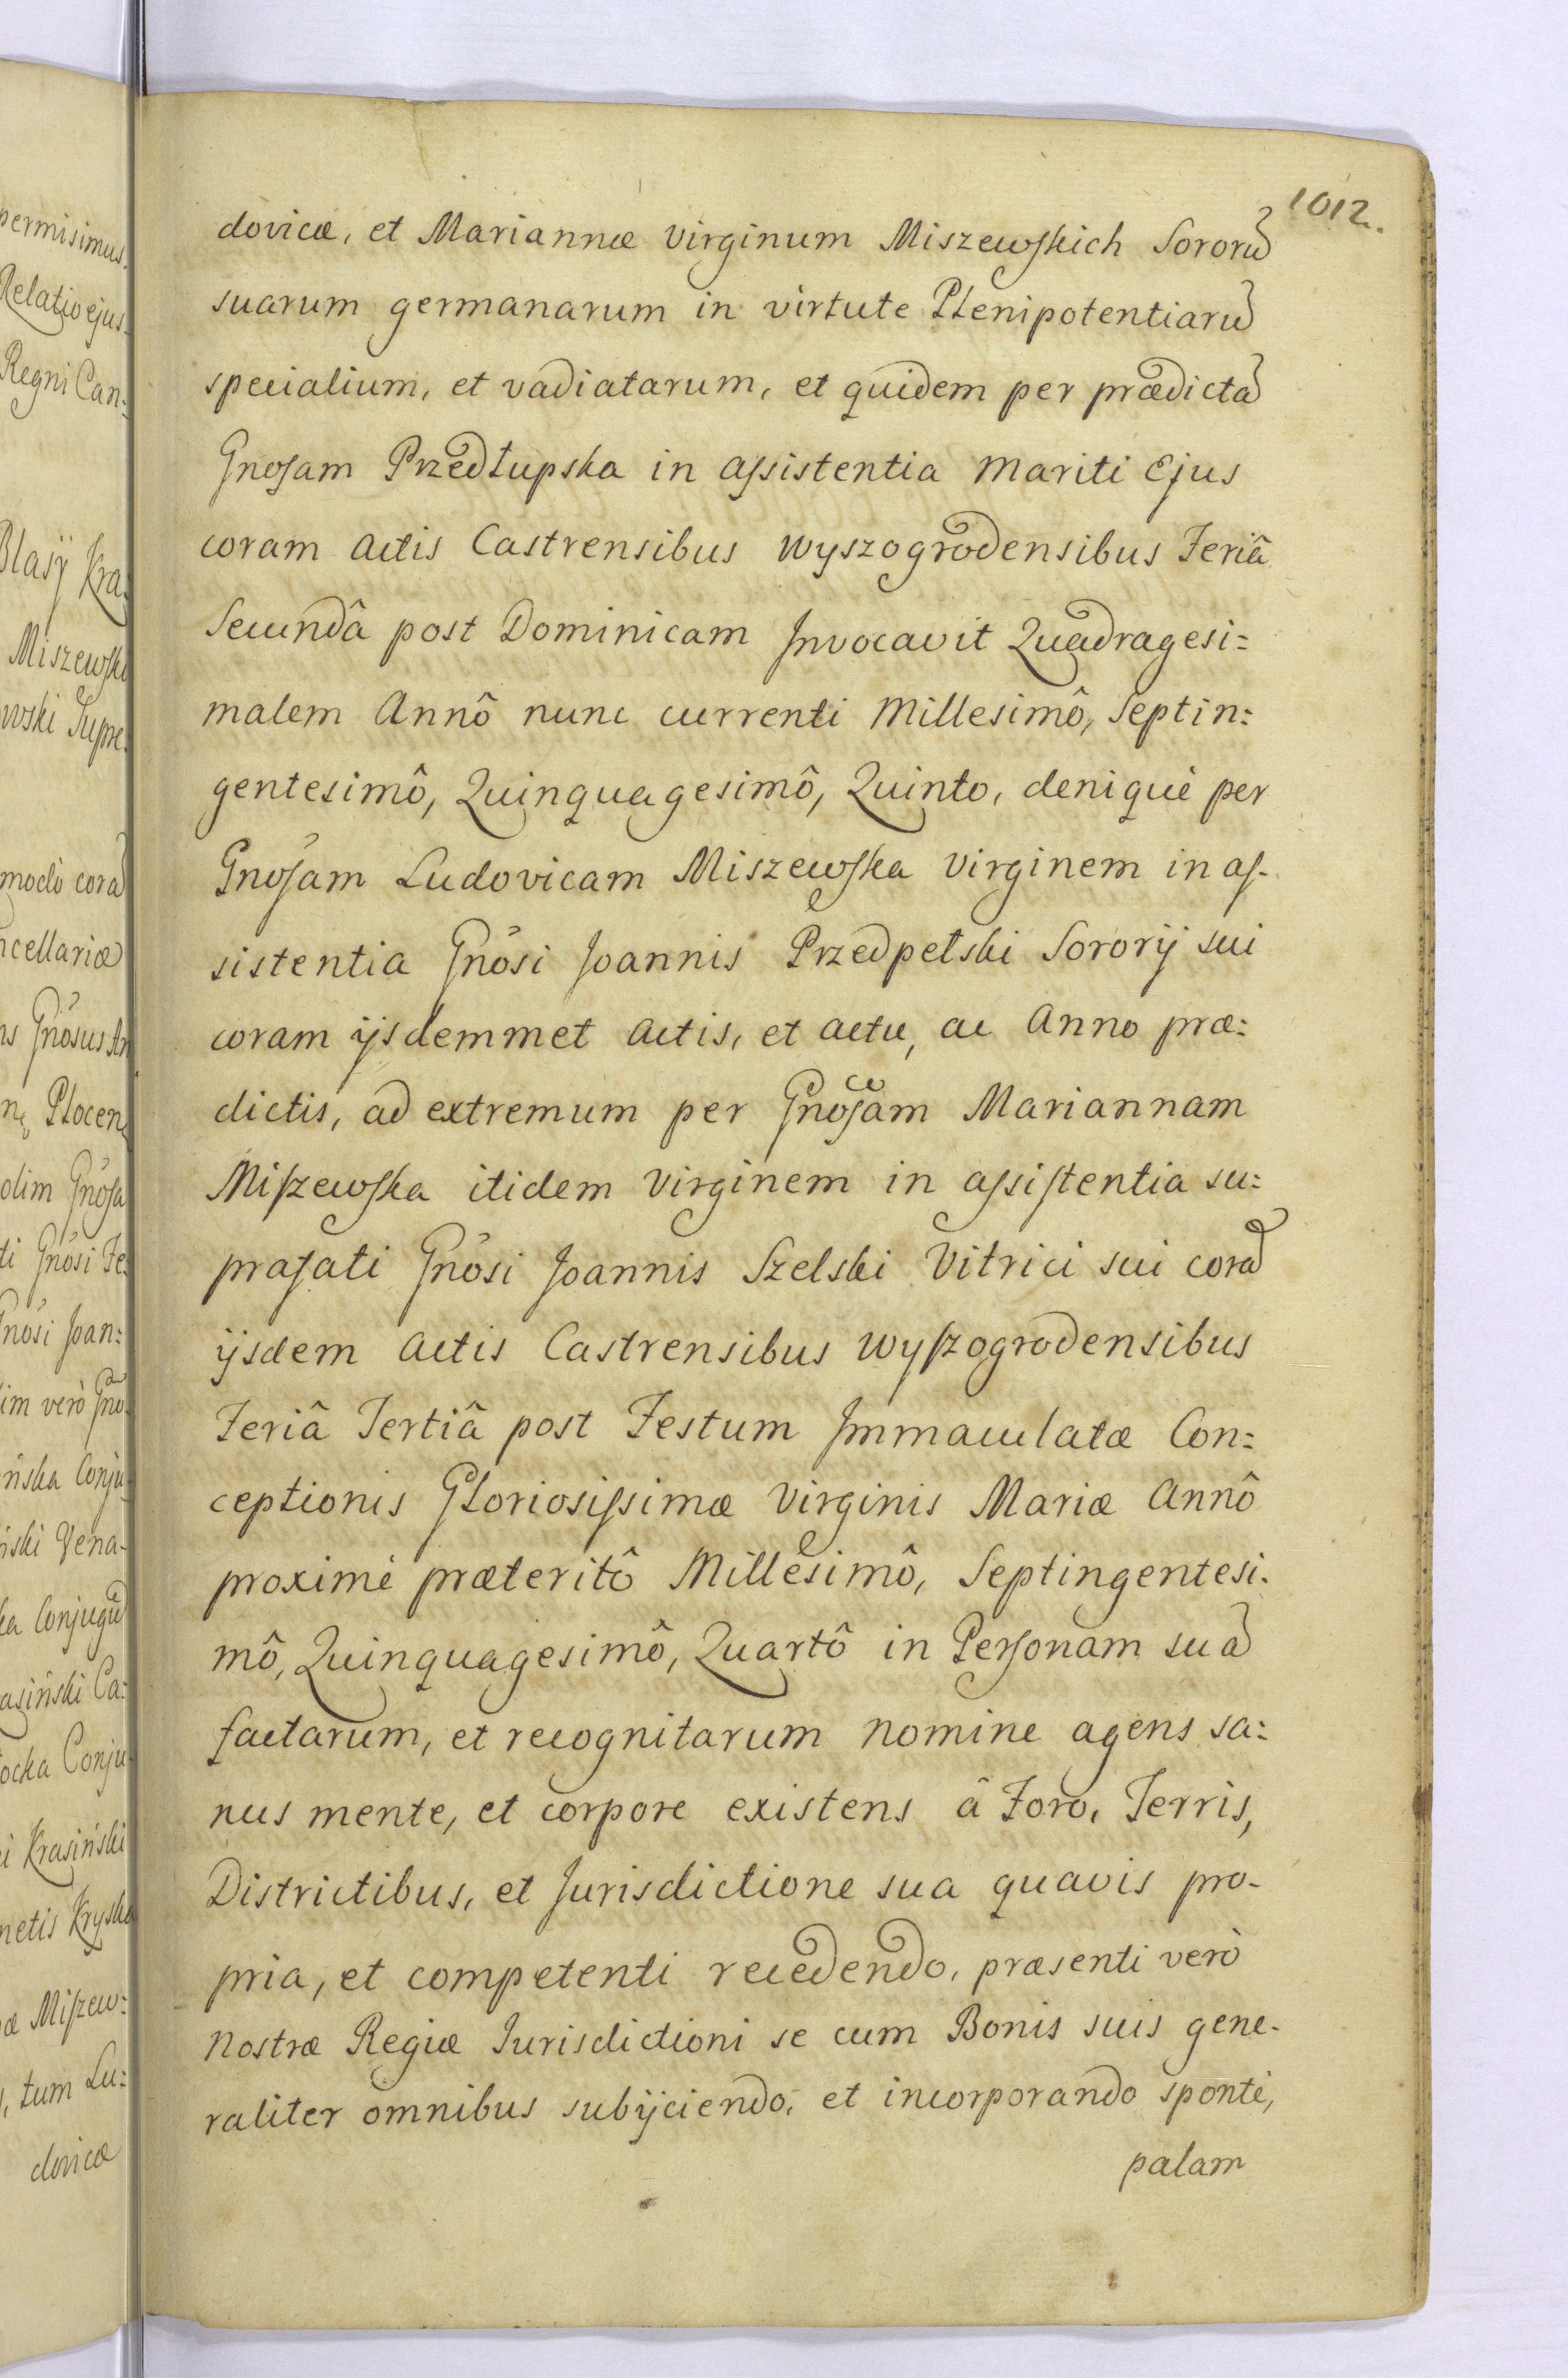 1012.
dovicæ, et Mariannæ Virginum Miszewskich Sororu͂
suarum germanarum in virtute Plenipotentiaru͂
specialium, et vadiatarum, et quidem per prædicta͂
Gnosam Przedłupska in assistentia Mariti Ejus
coram Actis Castrensibus Wyszogrodensibus Feriâ
Secundâ post Dominicam Invocavit Quadragesi=
malem Annô nunc currenti Millesimô, Septin=
gentesimô, Quinquagesimô, Quinto, deniquè per
Gnosam Ludovicam Miszewska Virginem in as-
sistentia Gnosi Joannis Przedpełski Sororij sui
coram ijsdemmet Actis, et actu, ac Anno præ=
dictis, ad extremum per Gnosam Mariannam
Miszewska itidem Virginem in assistentia su=
prafati Gnosi Joannis Szelski Vitrici sui cora͂
ijsdem Actis Castrensibus Wyszogrodensibus
Feriâ Tertiâ post Festum Immaculatæ Con=
ceptionis Gloriosissimæ Virginis Mariæ Annô
proximè præteritô Millesimô, Septingentesi-
mô, Quinquagesimô, Quartô in Personam sua͂
factarum, et recognitarum nomine agens sa=
nus mente, et corpore existens â Foro, Terris,
Districtibus, et Jurisdictione sua quavis pro-
pria, et competenti recedendo, præsenti verò
Nostræ Regiæ Jurisdictioni se cum Bonis suis gene-
raliter omnibus subijciendo, et incorporando spontè,
palam
permisimus.
Relatio ejus-
Regni Can=
Blasij Kra=
Miszewski
wski Supre=
modò cora͂
ncellariæ
ns Gnosus An
Plocen
olim Gnosa
ti Gnosi Fe=
Gnosi Joan=
im verò Gno=
ińska Conju=
iński Vena-
ka Conjugu͂
asiński Ca=
ocka Conju=
i Krasiński
netis Kryska
æ Miszew=
, tum Lu=
dovicæ